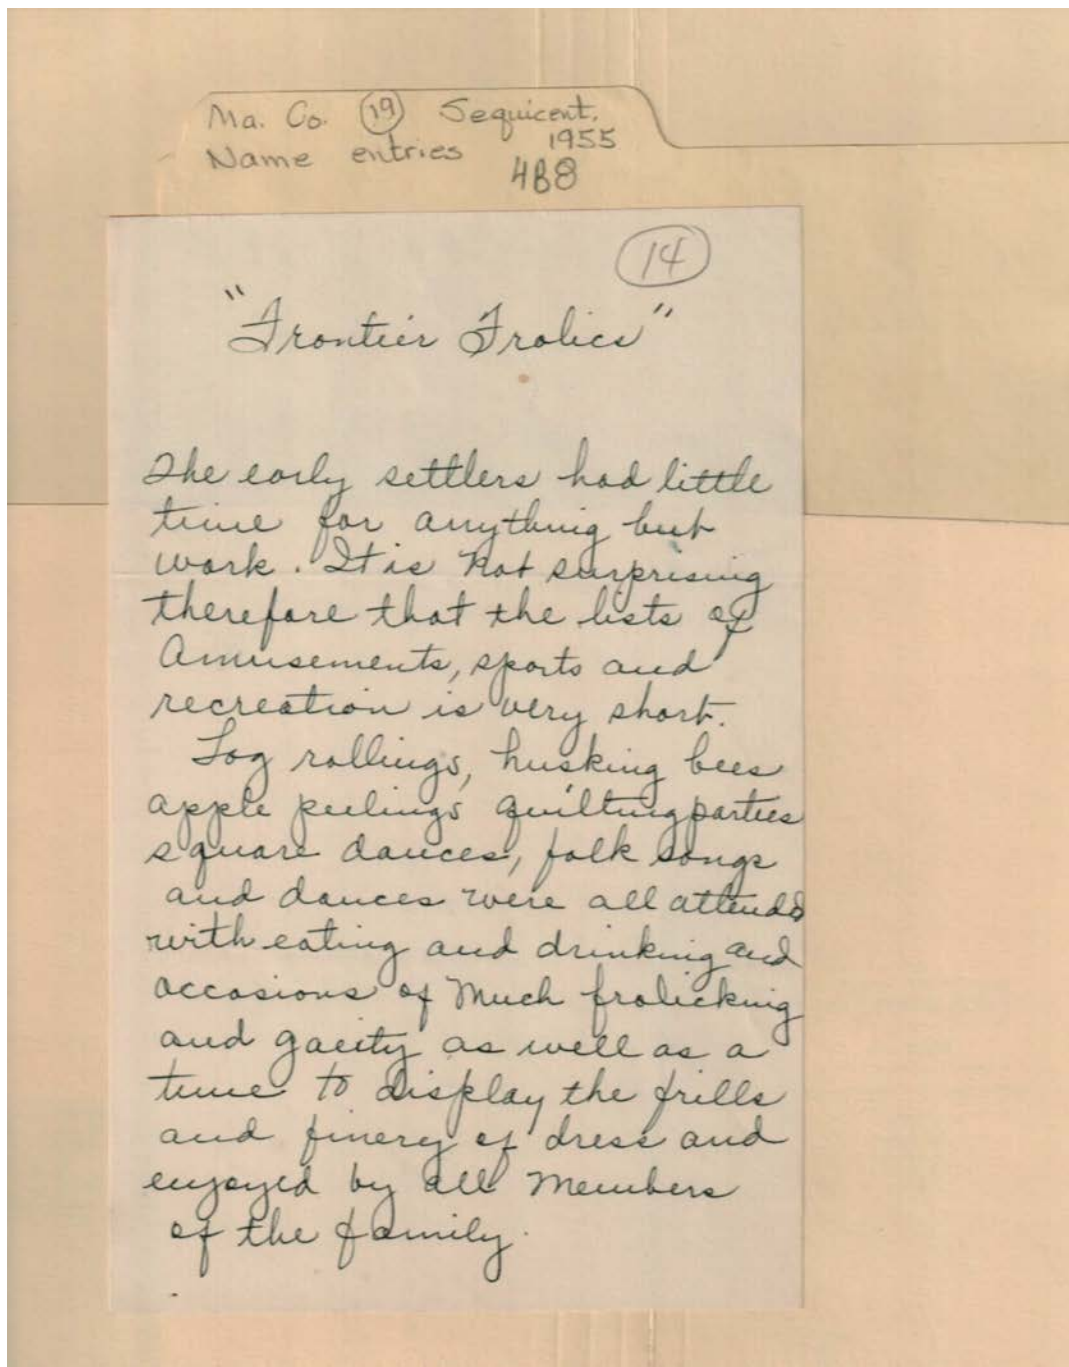 Ma. Co. 19 Sequicent.
1955
Name entries
4B8
14
"Frontier Frolics"
The early settlers had little
time for anything but
work. It is not surprising
therefore that the lists of
Amusements, sports and
recreation is very short.
Log rollings, husking bees
apple peelings quilting parties
square dances, folk songs
and dances were all attended
with eating and drinking and
occasions of Much frolicking
and gaeity as well as a
time to display the frills
and finery of dress and
enjoyed by all Members
of the family.